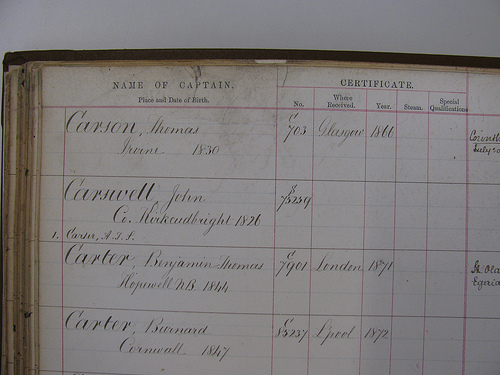 NAME OF CAPTAIN.
Place and Date of Birth.
CERTIFICATE.
No. Where Received. Year. Steam. Special Qualifications
Carson, Thomas
Irvine 1830
C 703 Glasgow 1866
Carswell John
Co. Kirkcudbright 1826
1. Carter, A.J.S.
Carter, Benjamin Thomas
Hopewell N.B. 1844
C 7901 London 1871
St Ola
Carter, Barnard
Cornwall 1847
85237 L'pool 1872